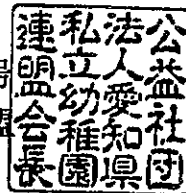 公益社団
法人愛知県
私立幼稚園
連盟会長